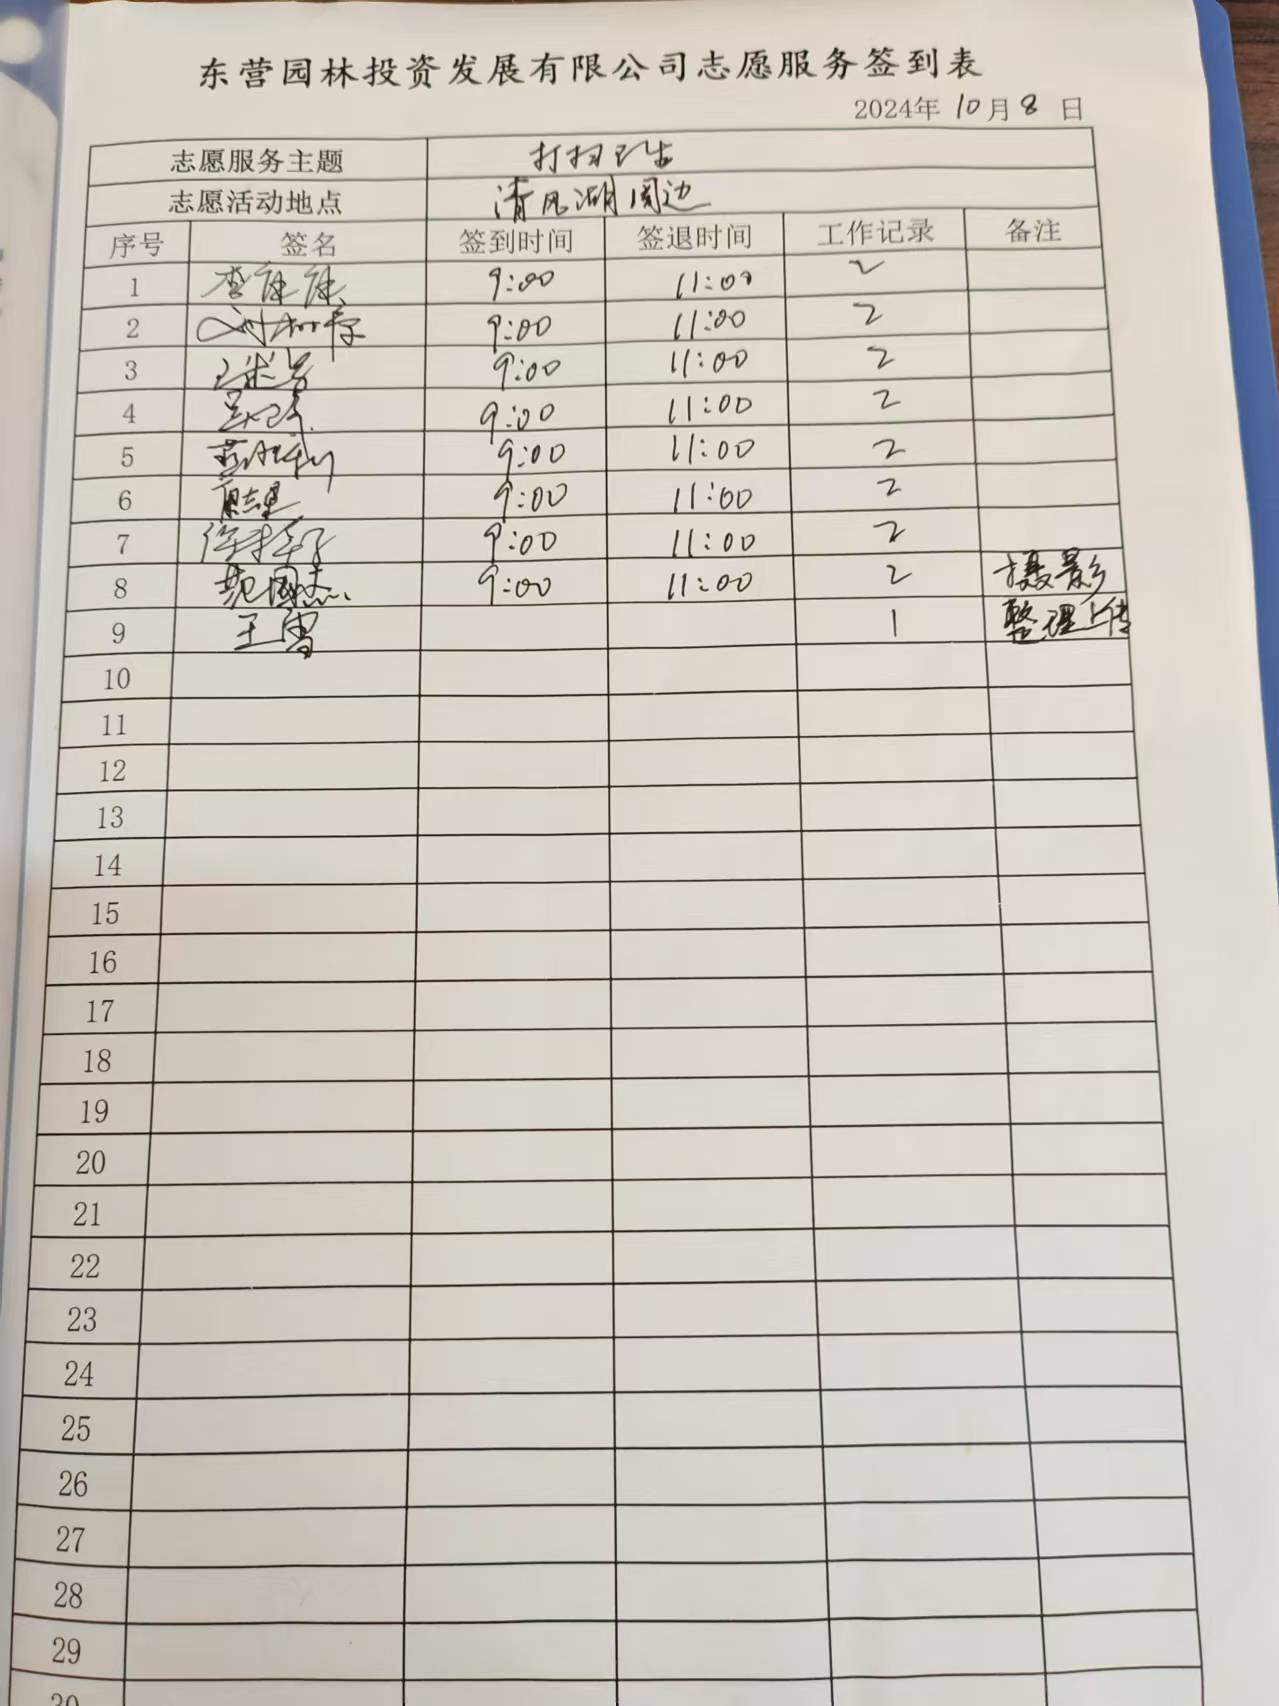 东营园林投资发展有限公司志愿服务签到表
2024年 10月 8 日
志愿服务主题 打扫卫生
志愿活动地点 清风湖周边
序号 签名 签到时间 签退时间 工作记录 备注
1 9:00 11:00 2
2 9:00 11:00 2
3 9:00 11:00 2
4 9:00 11:00 2
5 9:00 11:00 2
6 9:00 11:00 2
7 9:00 11:00 2
8 范国杰 9:00 11:00 2 摄影
9 王雪 1 整理上传
10
11
12
13
14
15
16
17
18
19
20
21
22
23
24
25
26
27
28
29
30